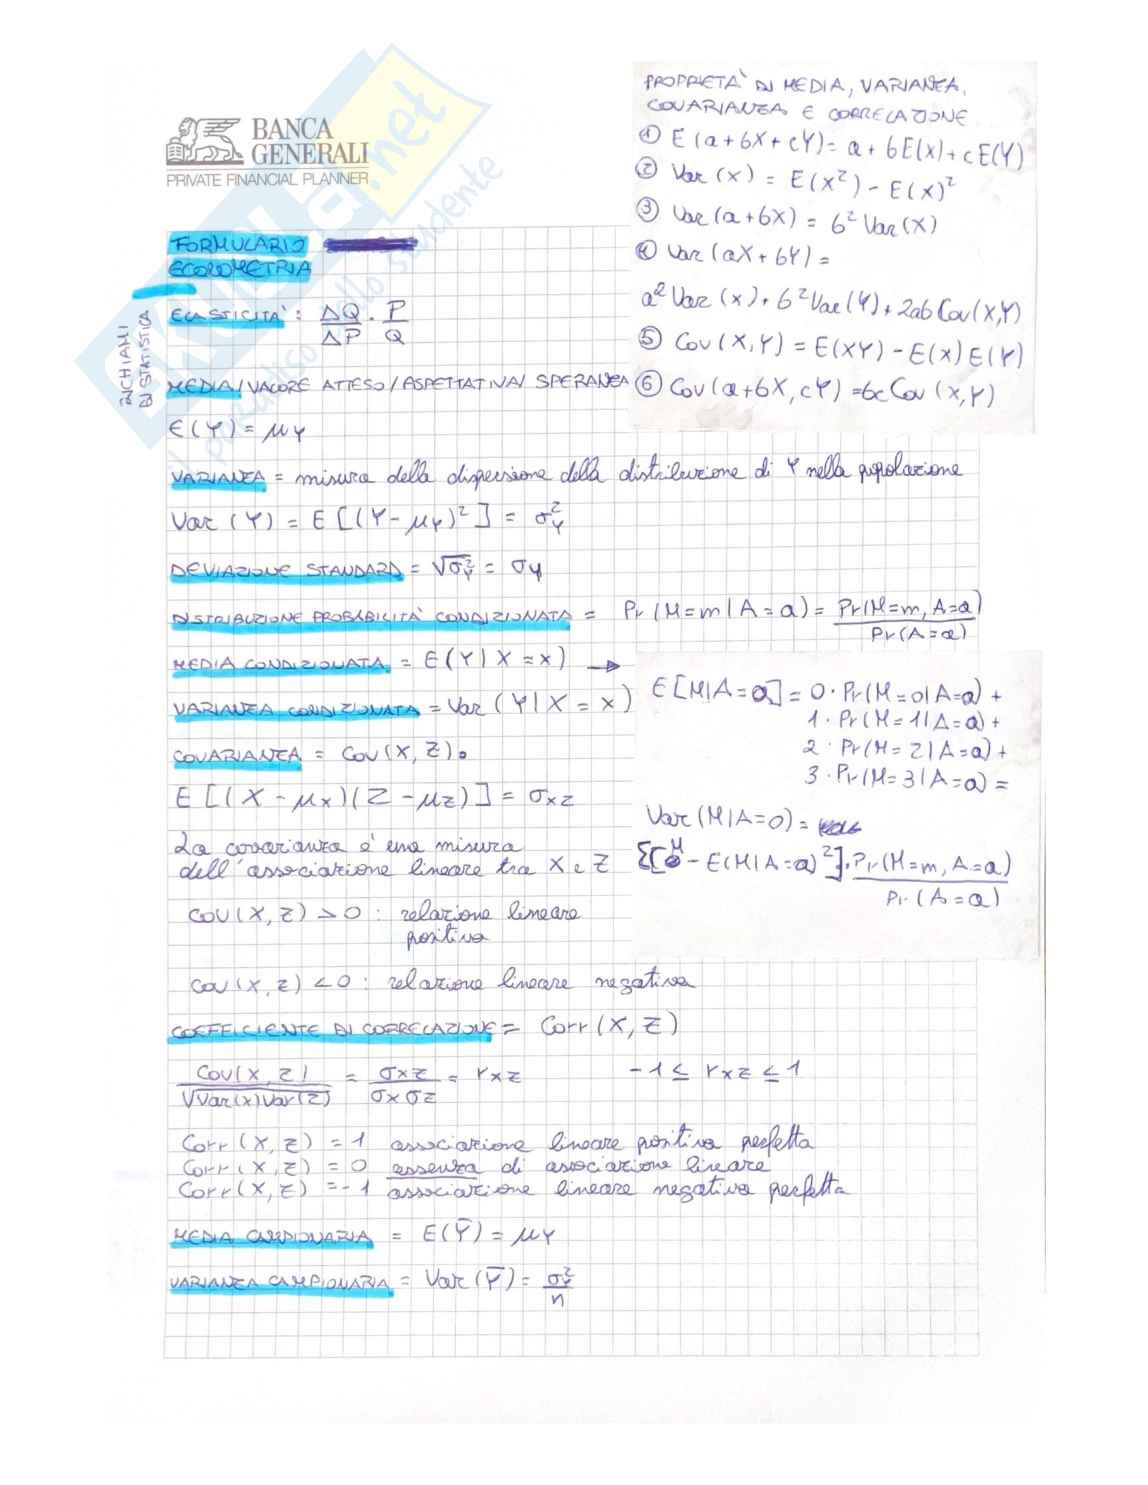 PROPRIETÀ DI MEDIA, VARIANZA,
COVARIANZA E CORRELAZIONE
① E(a+bX+cY)= a+bE(X)+cE(Y)
② Var(X) = E(X²) - E(X)²
③ Var(a+bX) = b² Var(X)
④ Var(aX+bY) =
a² Var(X)+b² Var(Y)+2ab Cov(X,Y)
⑤ Cov(X,Y) = E(XY) - E(X)E(Y)
⑥ Cov(a+bX, cY) = bc Cov(X,Y)
BANCA
GENERALI
PRIVATE FINANCIAL PLANNER
FORMULARIO
ECONOMETRIA
RICHIAMI
DI STATISTICA
ELASTICITÀ: ΔQ/ΔP · P/Q
MEDIA/VALORE ATTESO/ASPETTATIVA/SPERANZA
E(Y) = μY
VARIANZA = misura della dispersione della distribuzione di Y nella popolazione
Var(Y) = E[(Y-μY)²] = σ²Y
DEVIAZIONE STANDARD = √σ²Y = σY
DISTRIBUZIONE PROBABILITÀ CONDIZIONATA = Pr(M=m|A=a) = Pr(M=m, A=a)/Pr(A=a)
MEDIA CONDIZIONATA = E(Y|X=x) →
VARIANZA CONDIZIONATA = Var(Y|X=x)
E[M|A=a] = 0·Pr(M=0|A=a) +
1·Pr(M=1|A=a) +
2·Pr(M=2|A=a) +
3·Pr(M=3|A=a) =
Var(M|A=0) =
Σ[M - E(M|A=a)²]·Pr(M=m, A=a)/Pr(A=a)
COVARIANZA = Cov(X,Z) =
E[(X-μX)(Z-μZ)] = σXZ
La covarianza è una misura
dell'associazione lineare tra X e Z
COV(X,Z) > 0 : relazione lineare
positiva
Cov(X,Z) < 0 : relazione lineare negativa
COEFFICIENTE DI CORRELAZIONE = Corr(X,Z)
Cov(X,Z)/√Var(X)Var(Z) = σXZ/σXσZ = rXZ -1 ≤ rXZ ≤ 1
Corr(X,Z) = 1 associazione lineare positiva perfetta
Corr(X,Z) = 0 assenza di associazione lineare
Corr(X,Z) = -1 associazione lineare negativa perfetta
MEDIA CAMPIONARIA = E(Ȳ) = μY
VARIANZA CAMPIONARIA = Var(Ȳ) = σ²Y/n